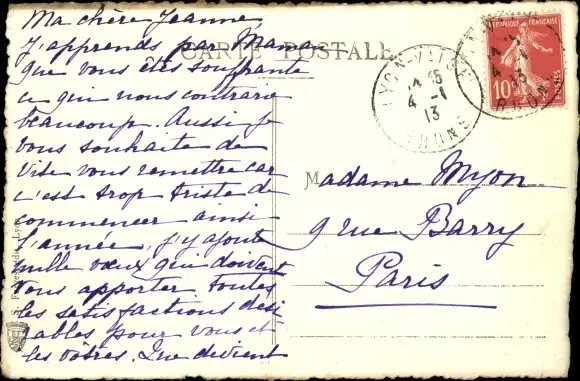 Ma chère Jeanne
J'apprends par Mama
que vous êtes souffrante
ce qui nous contrarie
beaucoup. Aussi je
vous souhaite de
vite vous remettre car
c'est trop triste de
commencer ainsi
l'année, j'y ajoute
mille vœux qui doivent
vous apporter toutes
les satisfactions dési
rables pour vous et
les vôtres. Que devient
CARTE POSTALE
LYON-VILLE
4 - 1
13
RHONE
RÉPUBLIQUE FRANÇAISE
10c
POSTES
Madame Myon
9 rue Barry
Paris